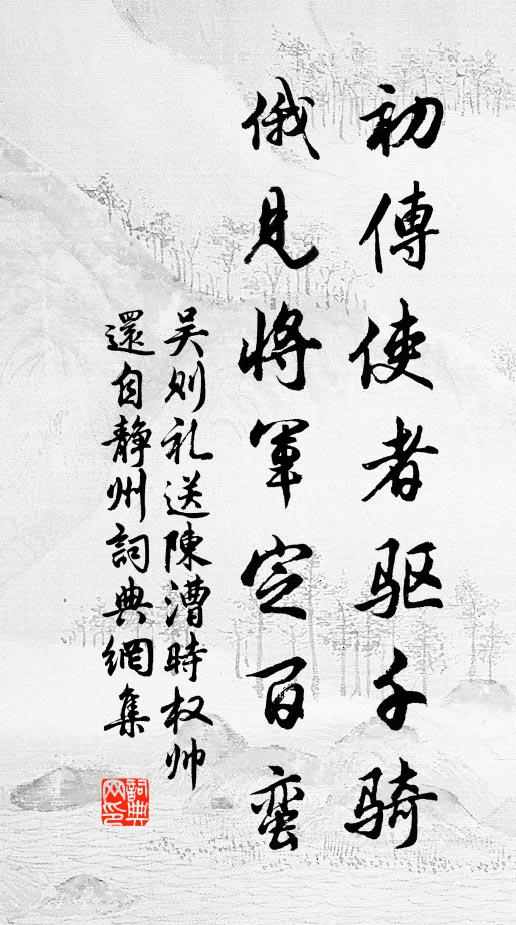 初傳使者驱千骑
俄見將軍定百蛮
吴则礼送陳漕時权帅
還自静州詞典網集
詞典
网印